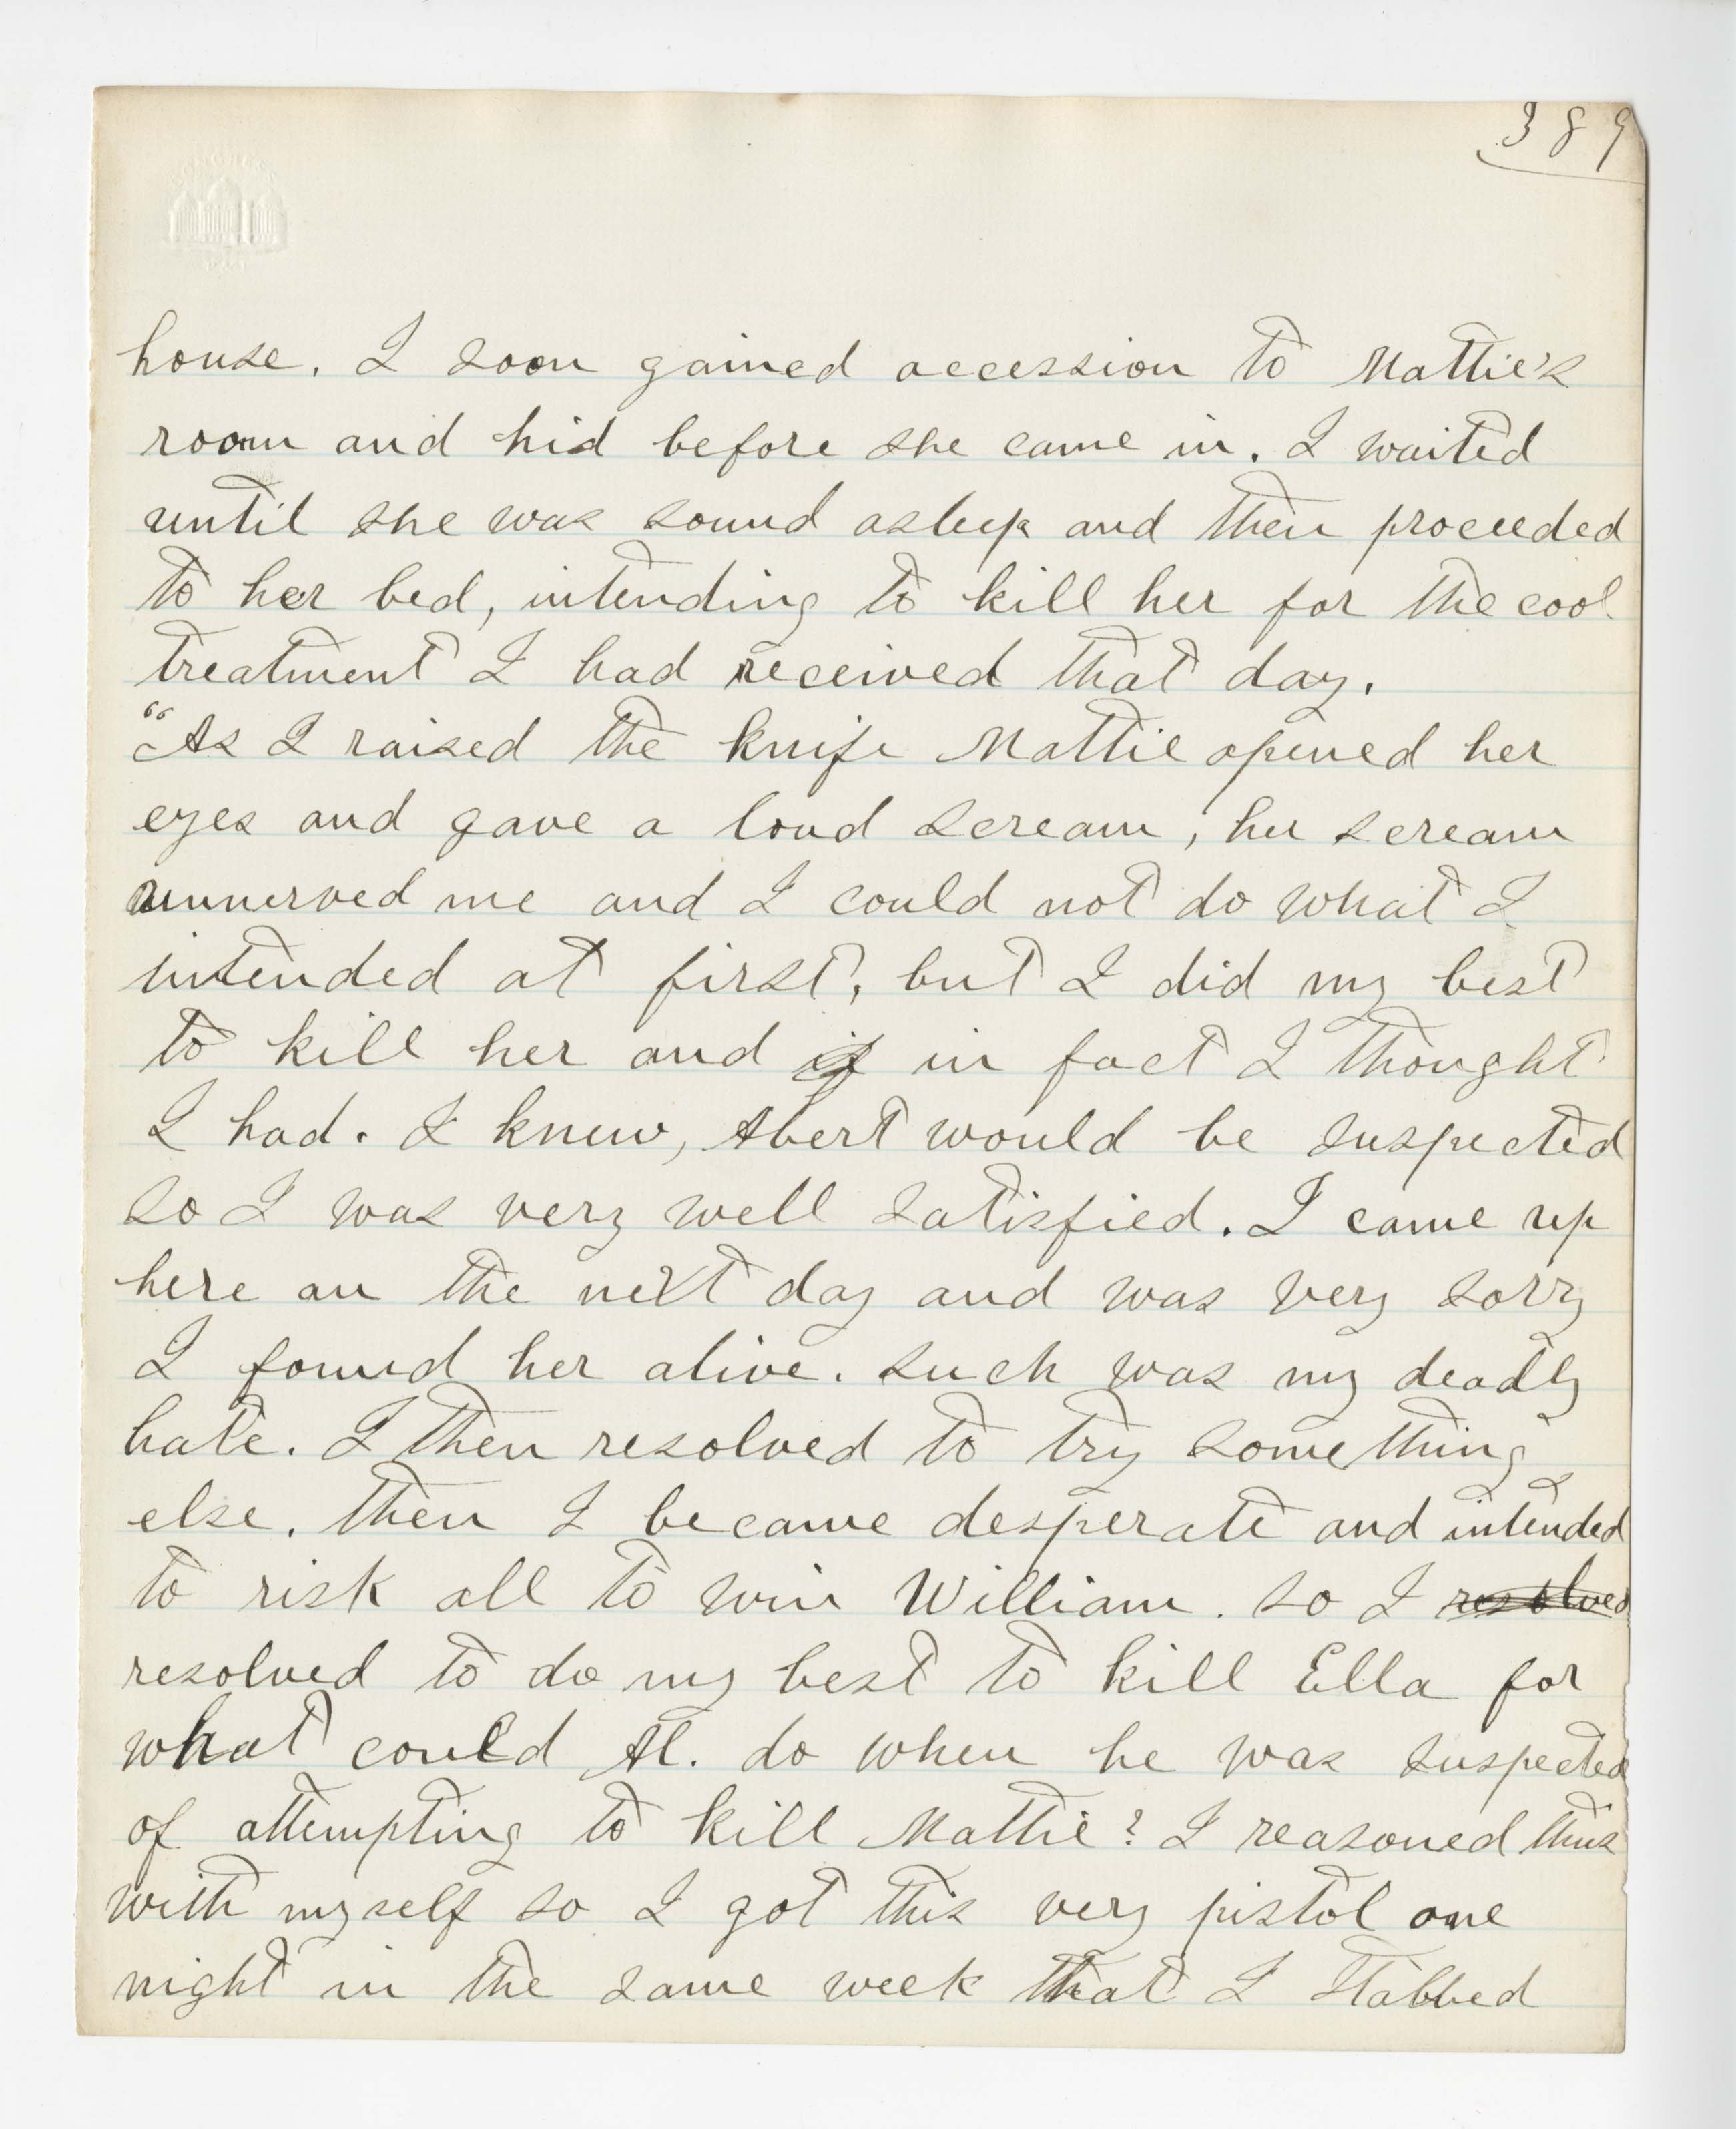 389
house. I soon gained accession to Mattie's
room and hid before she came in. I waited
until she was sound asleep and then proceeded
to her bed, intending to kill her for the cool
treatment I had received that day.
"As I raised the knife Mattie opened her
eyes and gave a loud scream, her scream
unnerved me and I could not do what I
intended at first, but I did my best
to kill her and if in fact I thought
I had. I knew, Abert would be suspected
so I was very well satisfied. I came up
here on the next day and was very sorry
I found her alive. Such was my deadly
hate. I then resolved to try something
else. Then I became desperate and intended
to risk all to win William. So I resolved
resolved to do my best to kill Ella for
what could Al. do when he was suspected
of attempting to kill Mattie? I reasoned thus
with myself so I got this very pistol one
night in the same week that I stabbed